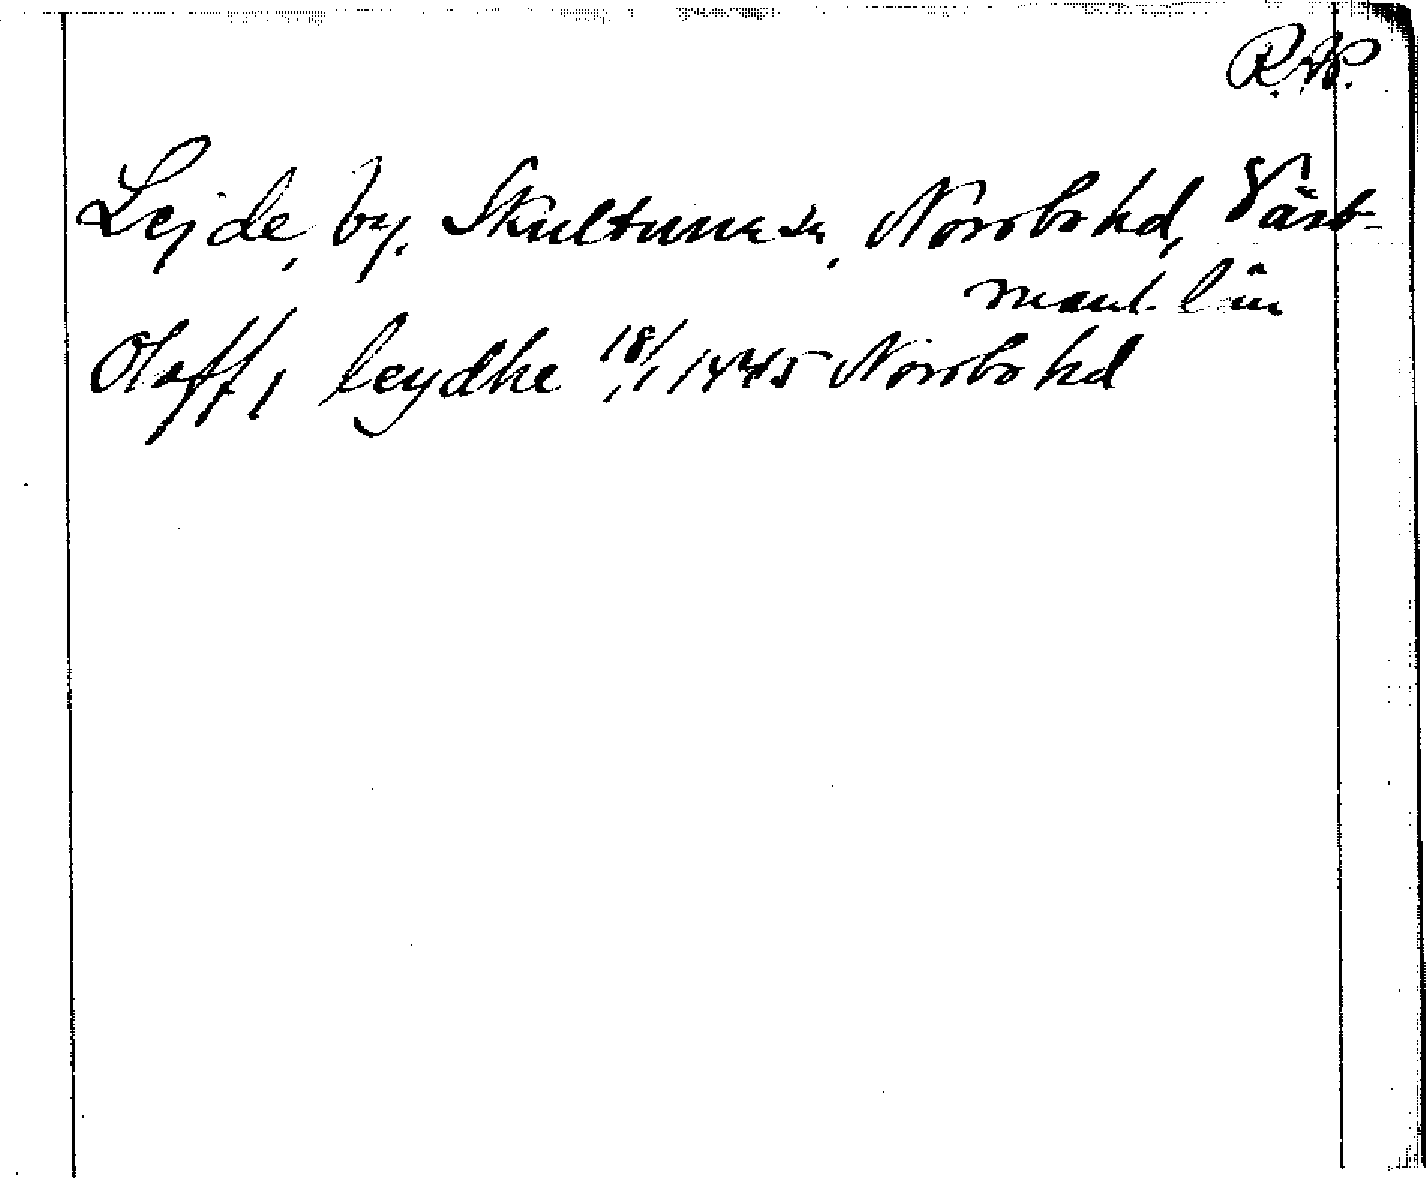 R.A.P.
Lejde, by, Skultuna sn, Norrbo hd, Väst-
manl. län
Olaff i leydhe 18/1 1445 Norrbo hd